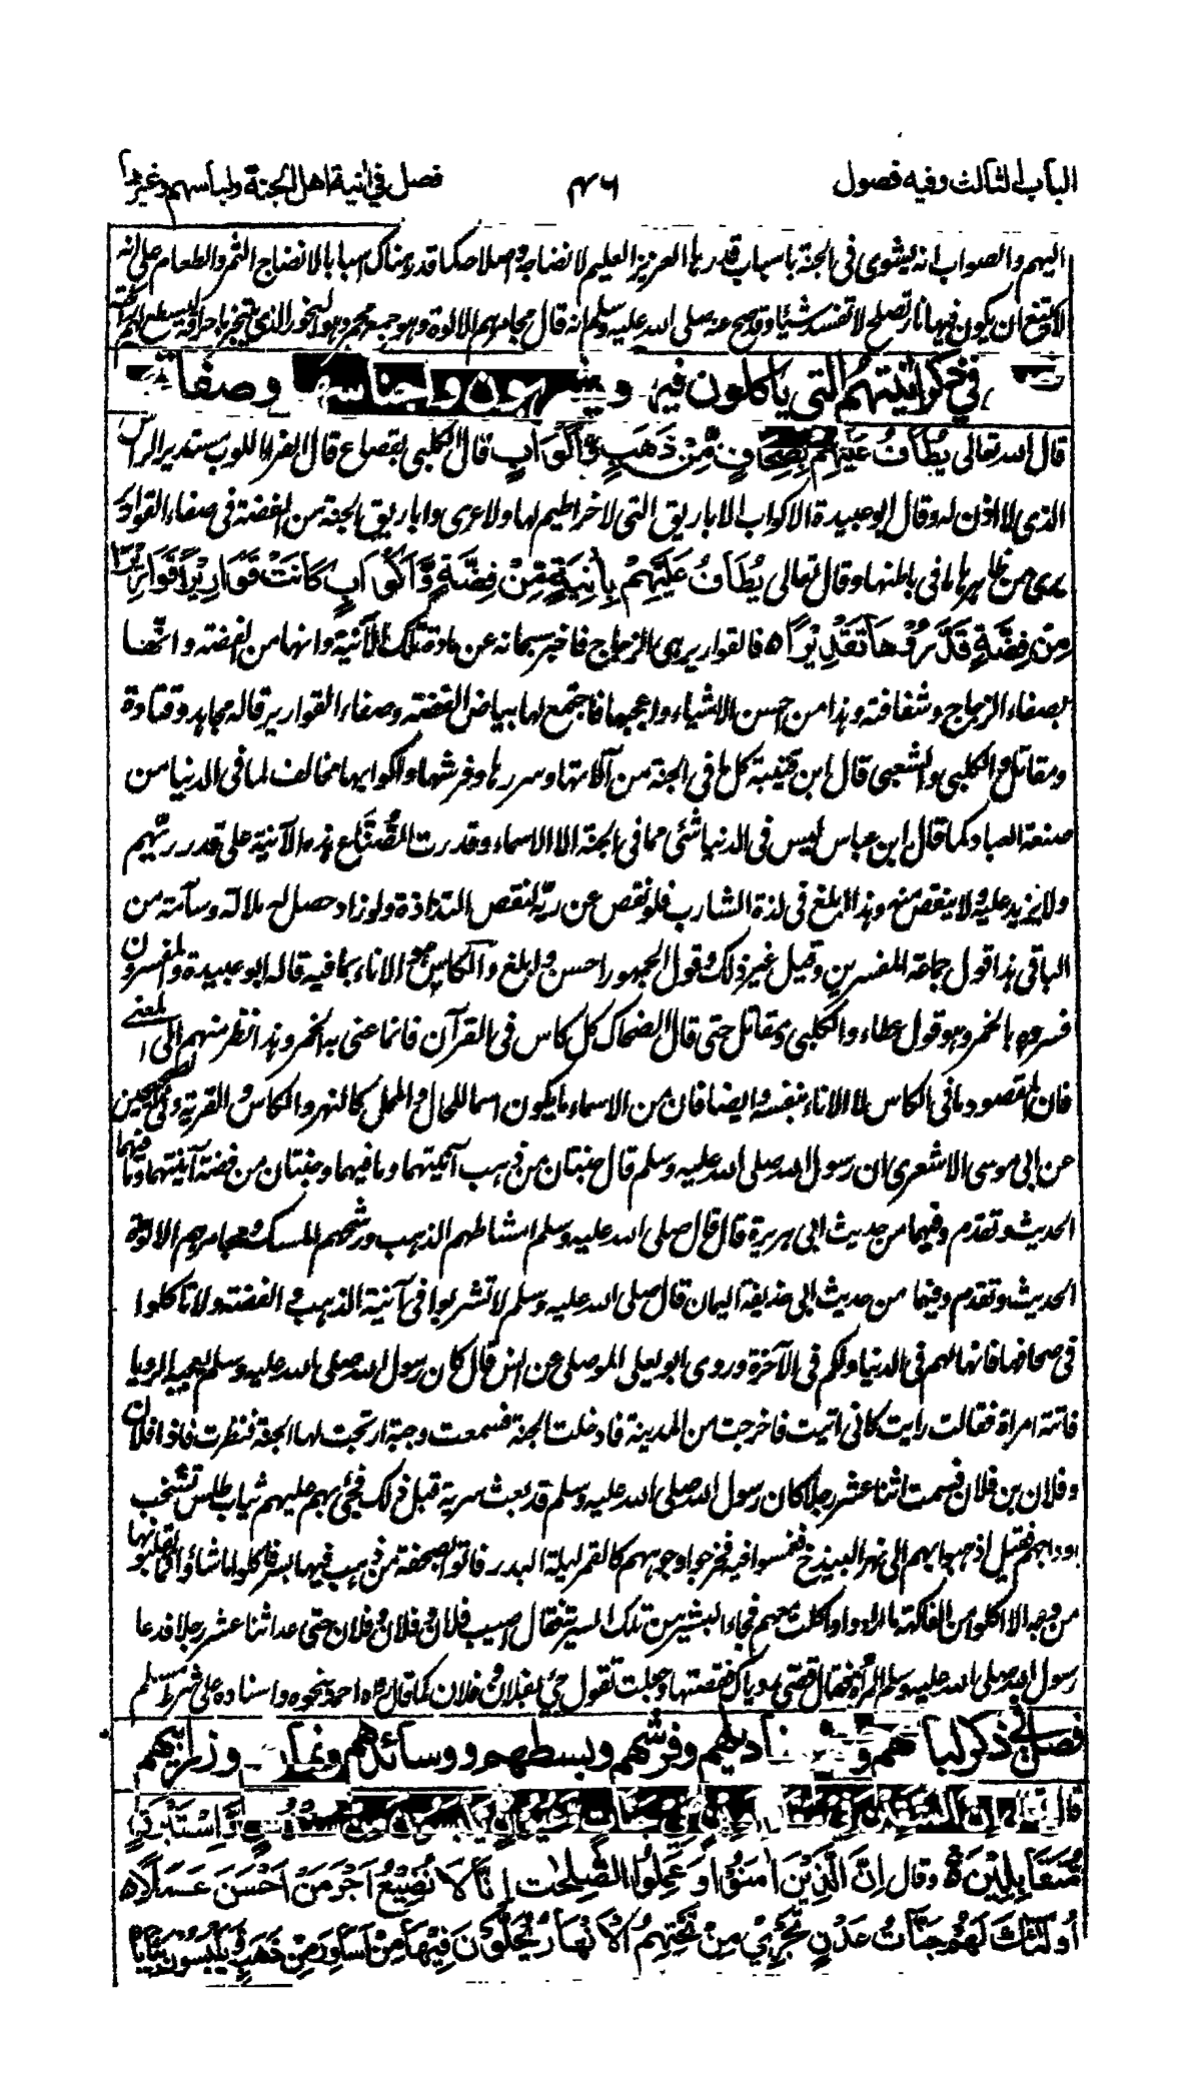 الباب الثالث وفيه فصول
٤٦
فصل في آنية اهل الجنة ولباسهم وغيرها
اليهم والصواب انه يشوى فى الجنة باسباب قدرها العزيز العليم لانضاجه واصلاحه كما قدر هناك اسبابا لانضاج الثمر والطعام على انه
لا يمتنع ان يكون فيها نار تصلح لا تفسد شيئا وقد صح عنه صلى الله عليه وسلم انه قال مجامرهم الالوة وهو جمع مجمر وهو البخور الذى يتبخر باحراقه
فى ذكر آنيتهم التى ياكلون فيها ويشربون واجناسها وصفاتها
قال الله تعالى يُطَافُ عَلَيْهِمْ بِصِحَافٍ مِّنْ ذَهَبٍ وَّاَكْوَابٍ قال الكلبى بقصاع قال الفراء الكوب مستدير الراس
الذى لا اذن له وقال ابو عبيدة الاكواب الاباريق التى لا خراطيم لها ولا عرى واباريق الجنة من الفضة فى صفاء القوارير
يرى من ظاهرها ما فى باطنها وقال تعالى يُطَافُ عَلَيْهِمْ بِاٰنِيَةٍ مِّنْ فِضَّةٍ وَّاَكْوَابٍ كَانَتْ قَوَارِيْرَا قَوَارِيْرَا
مِنْ فِضَّةٍ قَدَّرُوْهَا تَقْدِيْرًا ه فالقوارير هى الزجاج فاخبر سبحانه عن مادة تلك الآنية وانها من الفضة وانها
بصفاء الزجاج وشفافته وهذا من احسن الاشياء واعجبها فاجتمع لها بياض الفضة وصفاء القوارير قاله مجاهد وقتادة
ومقاتل والكلبى والشعبى قال ابن قتيبة كل ما فى الجنة من آلاتها وسررها وفرشها واكوابها مخالف لما فى الدنيا من
صنعة العباد كما قال ابن عباس ليس فى الدنيا شئ مما فى الجنة الا الاسماء وقدرت الصُّنَّاع هذه الآنية على قدر ريّهم
ولا يزيد عليه ولا ينقص منه وهذا ابلغ فى لذة الشارب فلو نقص عن ريّه لنقص التذاذه ولو زاد حصل له ملالة وسآمة من
الباقى هذا قول جماعة المفسرين وقيل غير ذلك وقول الجمهور احسن وابلغ والكاس هو الاناء بما فيه قاله ابو عبيدة والمفسرون
فسروه بالخمر وهو قول عطاء والكلبى ومقاتل حتى قال الضحاك كل كاس فى القرآن فانما عنى به الخمر وهذا نظر منهم الى المعنى
فان المقصود ما فى الكاس لا الاناء بنفسه وايضا فان من الاسماء ما يكون اسما للحال والمحل كالنهر والكاس والقرية وفى الصحيحين
عن ابى موسى الاشعرى ان رسول الله صلى الله عليه وسلم قال جنتان من ذهب آنيتهما وما فيهما وجنتان من فضة آنيتهما وما فيهما
الحديث وتقدم وفيهما من حديث ابى هريرة قال قال صلى الله عليه وسلم امشاطهم الذهب ورشحهم المسك ومجامرهم الالوة
الحديث وتقدم وفيهما من حديث ابى حذيفة اليمان قال صلى الله عليه وسلم لا تشربوا فى آنية الذهب والفضة ولا تاكلوا
فى صحافها فانها لهم فى الدنيا ولكم فى الآخرة وروى ابو يعلى الموصلى عن انس قال كان رسول الله صلى الله عليه وسلم يعجبه الرويا
فاتته امراة فقالت رايت كانى اتيت فاخرجت من المدينة فادخلت الجنة فسمعت وجبة ارتجت لها الجنة فنظرت فاذا فلان
وفلان بن فلان فسمت اثنا عشر رجلا كان رسول الله صلى الله عليه وسلم قد بعث سرية قبل ذلك فجئ بهم عليهم ثياب طلس تشخب
اوداجهم فقيل اذهبوا بهم الى نهر البيذخ فغمسوا فيه فخرجوا وجوههم كالقمر ليلة البدر فاتوا بصحفة من ذهب فيها بسر فاكلوا ما شاؤا فما يقلبونها
من وجه الا اكلوا من الفاكهة ما ارادوا واكلت معهم فجاء البشير من تلك السرية فقال اصيب فلان وفلان وفلان حتى عد اثنا عشر رجلا فدعا
رسول الله صلى الله عليه وسلم المرأة فقال قصى رؤياك فقصتها وجعلت تقول جئ بفلان وفلان كما قال رواه احمد بنحوه واسناده على شرط مسلم
فصل فى ذكر لباسهم و مناديلهم وفرشهم وبسطهم ووسائدهم ونمارقهم وزرابيهم
قال تعالى اِنَّ الْمُتَّقِيْنَ فِىْ مَقَامٍ اَمِيْنٍ فِىْ جَنَّاتٍ وَّعُيُوْنٍ يَلْبَسُوْنَ مِنْ سُنْدُسٍ وَّاِسْتَبْرَقٍ
مُّتَقَابِلِيْنَ ه وقال اِنَّ الَّذِيْنَ اٰمَنُوْا وَعَمِلُوا الصّٰلِحٰتِ اِنَّا لَا نُضِيْعُ اَجْرَ مَنْ اَحْسَنَ عَمَلًا ه
اُولٰئِكَ لَهُمْ جَنَّاتُ عَدْنٍ تَجْرِىْ مِنْ تَحْتِهِمُ الْاَنْهَارُ يُحَلَّوْنَ فِيْهَا مِنْ اَسَاوِرَ مِنْ ذَهَبٍ وَّيَلْبَسُوْنَ ثِيَابًا